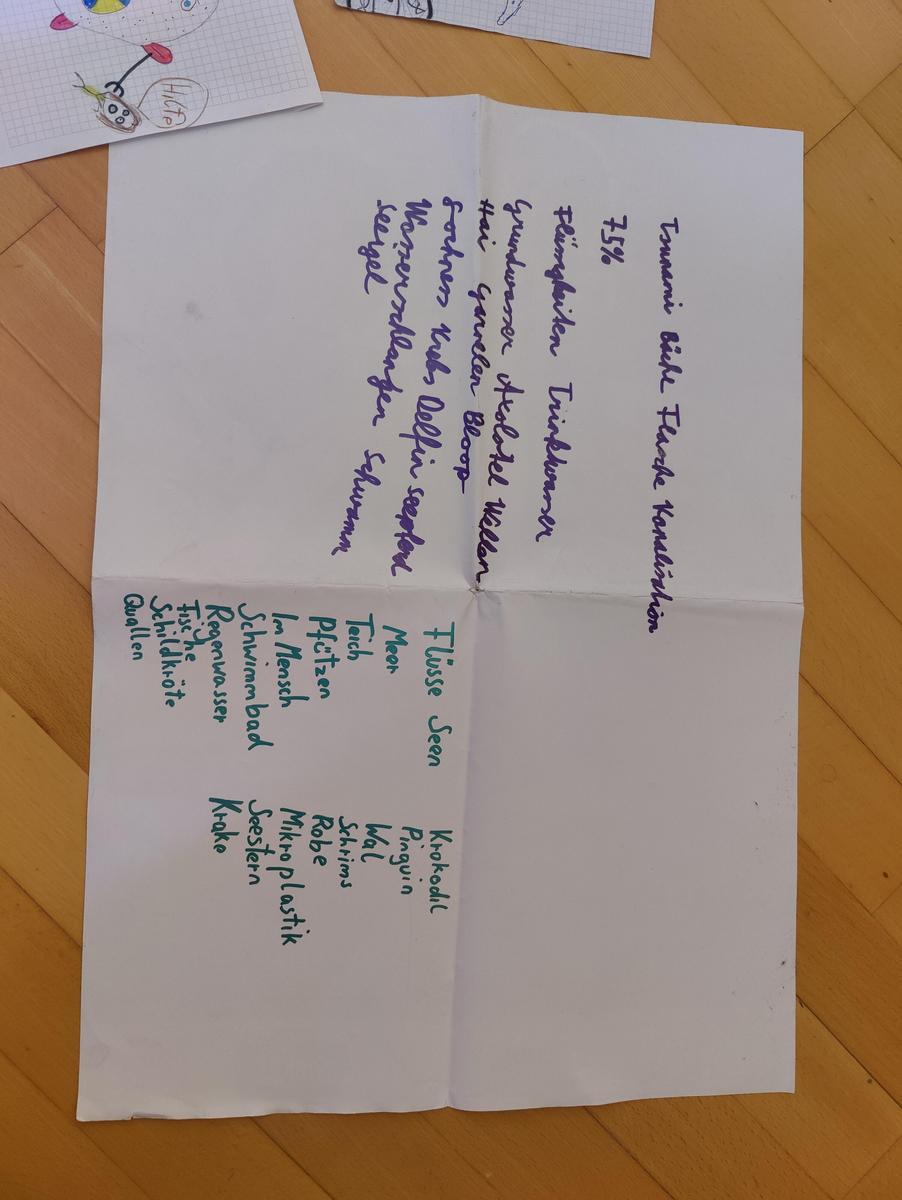 Tsunami Bäche Flasche Kanalisation
75%
Flüssigkeiten Trinkwasser
Grundwasser Axolotel Wellen
Hai Garnelen Bloop
Lochness Krebs Delfin Seepferd
Wasserschlangen Schwamm
Seeigel
Flüsse Seen
Meer
Teich
Pfützen
Im Mensch
Schwimmbad
Regenwasser
Fische
Schildkröte
Quallen
Krokodil
Pinguin
Wal
Schrims
Robbe
Mikroplastik
Seestern
Krake
Hilfe